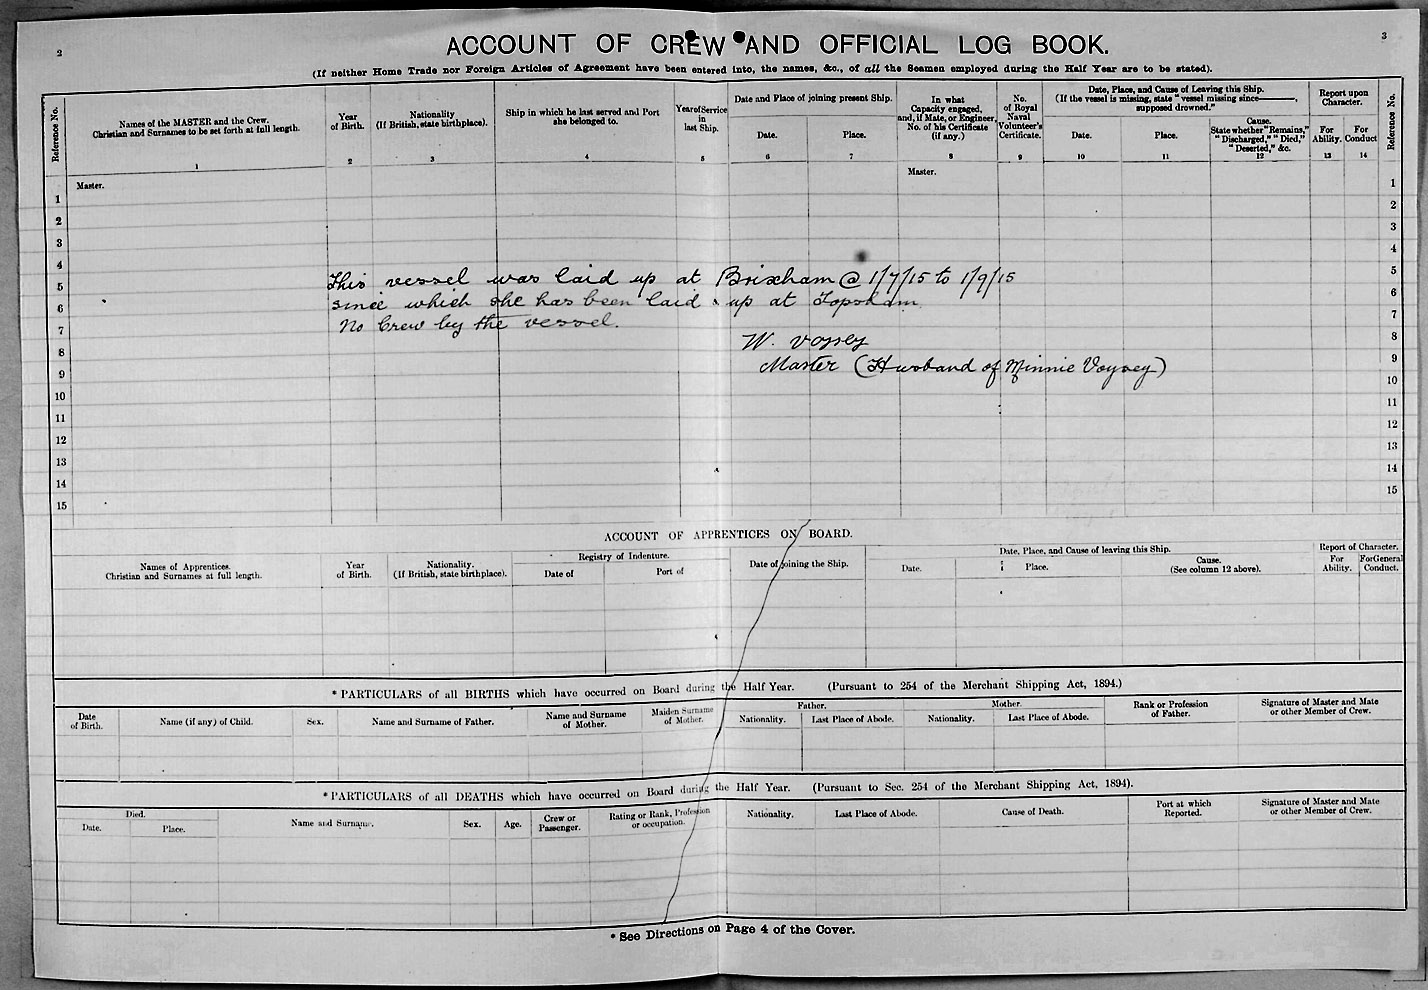 2
3
ACCOUNT OF CREW AND OFFICIAL LOG BOOK.
(If neither Home Trade nor Foreign Articles of Agreement have been entered into, the names, &c., of all the Seamen employed during the Half Year are to be stated).
Reference No.
Names of the MASTER and the Crew.
Christian and Surnames to be set forth at full length.
1
Year
of Birth.
2
Nationality
(If British, state birthplace).
3
Ship in which he last served and Port
she belonged to.
4
Year of Service
in
last Ship.
5
Date and Place of joining present Ship.
Date.
6
Place.
7
In what
Capacity engaged,
and, if Mate, or Engineer,
No. of his Certificate
(if any.)
8
No.
of Royal
Naval
Volunteer's
Certificate.
9
Date, Place, and Cause of Leaving this Ship.
(If the vessel is missing, state "vessel missing since———,
supposed drowned."
Date.
10
Place.
11
Cause.
State whether "Remains,"
"Discharged," "Died,"
"Deserted," &c.
12
Report upon
Character.
For
Ability.
13
For
Conduct
14
Reference No.
Master.
Master.
1
2
3
4
5
6
7
8
9
10
11
12
13
14
15
This vessel was laid up at Brixham @ 1/7/15 to 1/9/15
since which she has been laid up at Topsham
No Crew by the vessel.
W. Voysey
Master (Husband of Minnie Voysey)
1
2
3
4
5
6
7
8
9
10
11
12
13
14
15
ACCOUNT OF APPRENTICES ON BOARD.
Names of Apprentices.
Christian and Surnames at full length.
Year
of Birth.
Nationality.
(If British, state birthplace).
Registry of Indenture.
Date of
Port of
Date of joining the Ship.
Date, Place, and Cause of leaving this Ship.
Date.
Place.
Cause.
(See column 12 above).
Report of Character.
For
Ability.
For General
Conduct.
* PARTICULARS of all BIRTHS which have occurred on Board during the Half Year. (Pursuant to 254 of the Merchant Shipping Act, 1894.)
Date
of Birth.
Name (if any) of Child.
Sex.
Name and Surname of Father.
Name and Surname
of Mother.
Maiden Surname
of Mother.
Father.
Nationality.
Last Place of Abode.
Mother.
Nationality.
Last Place of Abode.
Rank or Profession
of Father.
Signature of Master and Mate
or other Member of Crew.
* PARTICULARS of all DEATHS which have occurred on Board during the Half Year. (Pursuant to Sec. 254 of the Merchant Shipping Act, 1894).
Died.
Date.
Place.
Name and Surname.
Sex.
Age.
Crew or
Passenger.
Rating or Rank, Profession
or occupation.
Nationality.
Last Place of Abode.
Cause of Death.
Port at which
Reported.
Signature of Master and Mate
or other Member of Crew.
* See Directions on Page 4 of the Cover.